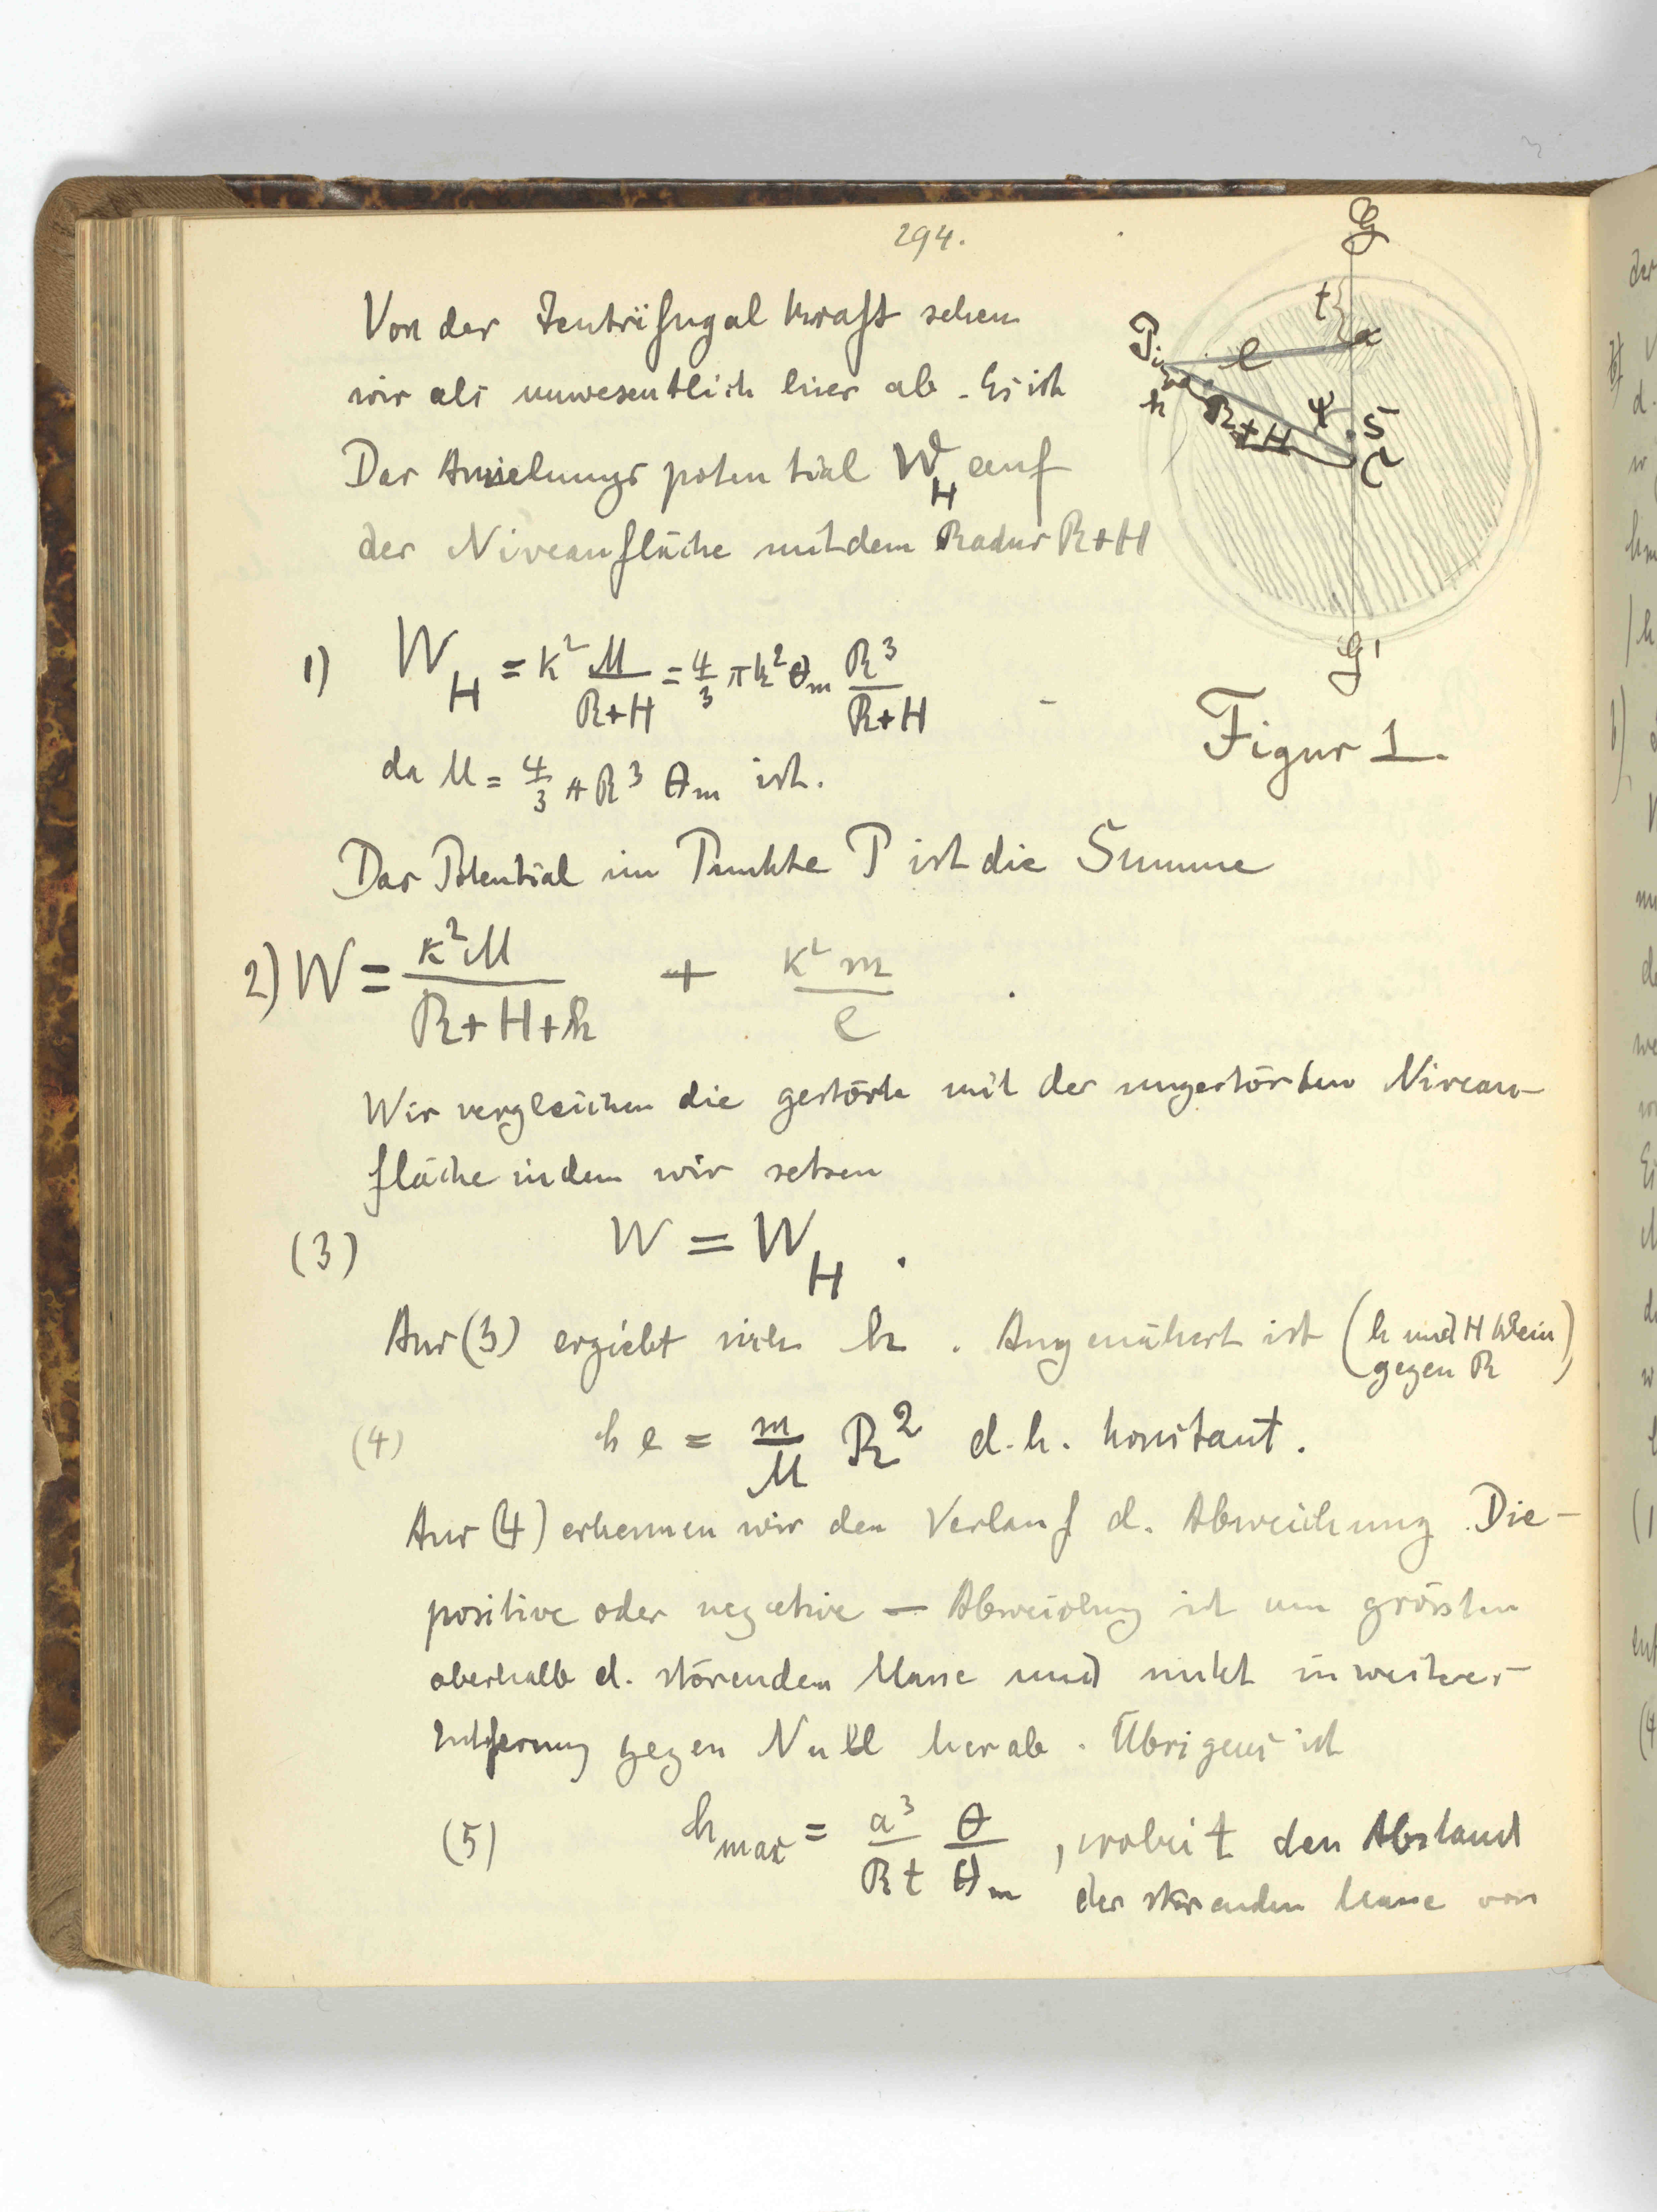 294.
Von der Zentrifugal Kraft sehen
wir als unwesentlich hier ab. Es ist
Das Anziehungspotential W_H auf
der Niveaufläche mit dem Radius R+H
1) W_H = k² M/(R+H) = 4/3 π k² θ_m R³/(R+H)
da M = 4/3 π R³ θ_m ist.
Das Potential im Punkte P ist die Summe
2) W = k² M/(R+H+h) + k² m/e
Wir vergleichen die gestörte mit der ungestörten Niveau-
fläche indem wir setzen
(3) W = W_H.
Aus (3) ergiebt sich h. Angenähert ist (h und H klein
gegen R)
(4) h e = m/M R² d.h. konstant.
Aus (4) erkennen wir den Verlauf d. Abweichung. Die -
positive oder negative - Abweichung ist am grössten
oberhalb d. störenden Masse und sinkt in weiter
Entfernung gegen Null herab. Übrigens ist
(5) h_max = a³/(R t) θ/θ_m, wobei t den Abstand
der störenden Masse von
G
t
P
e
h
R+H
ψ
S
C
G'
Figur 1.